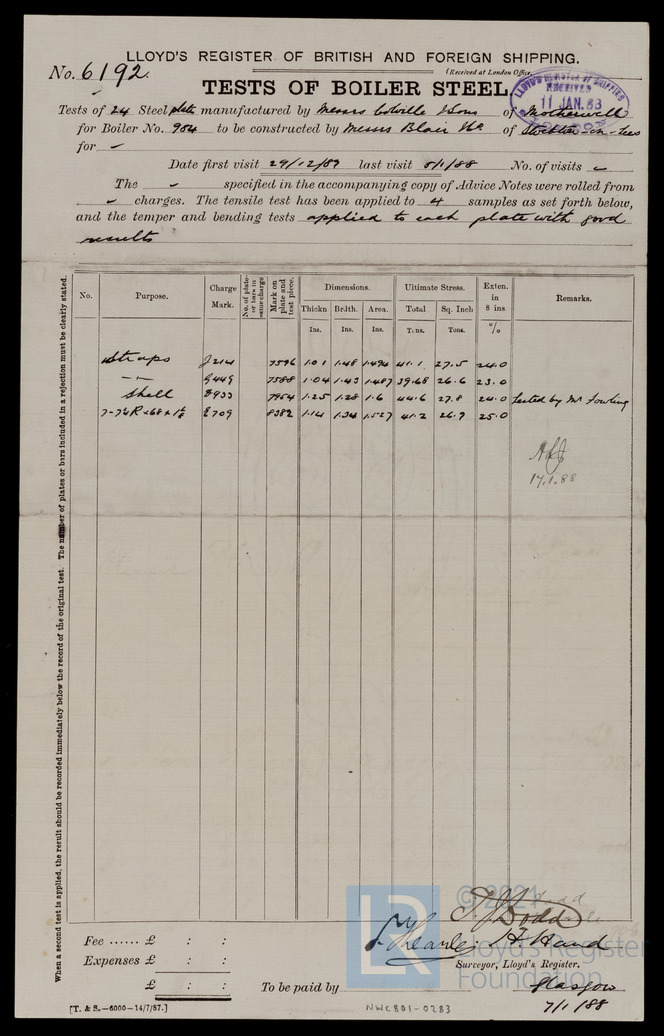 LLOYD'S REGISTER OF BRITISH AND FOREIGN SHIPPING.
No. 6192.
(Received at London Office
LLOYD'S REGISTER OF SHIPPING RECEIVED 11 JAN. 88
TESTS OF BOILER STEEL
Tests of 24 Steel plates manufactured by Messrs Colville & Sons of Motherwell
for Boiler No. 904 to be constructed by Messrs Blair & Co. of Stockton-on-Tees
for -
Date first visit 29/12/87 last visit 5/1/88 No. of visits
The - specified in the accompanying copy of Advice Notes were rolled from
- charges. The tensile test has been applied to 4 samples as set forth below,
and the temper and bending tests applied to each plate with good
results
When a second test is applied, the result should be recorded immediately below the record of the original test. The number of plates or bars included in a rejection must be clearly stated.
No. Purpose. Charge Mark. No. of plates or bars in same charge Mark on plate and test piece. Dimensions. Ultimate Stress. Exten. in 8 ins Remarks.
Thickn Br'dth. Area. Total Sq. Inch
Ins. Ins. Ins. Tons. Tons. %
Straps J214 7596 1.01 1.48 1.494 41.1 27.5 24.0
-"- G449 7588 1.04 1.43 1.487 39.68 26.6 23.0
Shell E933 7954 1.25 1.28 1.6 44.6 27.8 24.0 tested by Mr Fowling
E709 8382 1.14 1.34 1.527 41.2 26.9 25.0
17.1.88
T. J. Dodd
H. Hand
Fee ...... £ : :
Expenses £ : :
£ : :
Surveyor, Lloyd's Register.
To be paid by
Glasgow
7/1/88
[T. & S.—6000—14/7/87.]
NWC801-0283
© 2021
LR
Lloyd's Register
Foundation